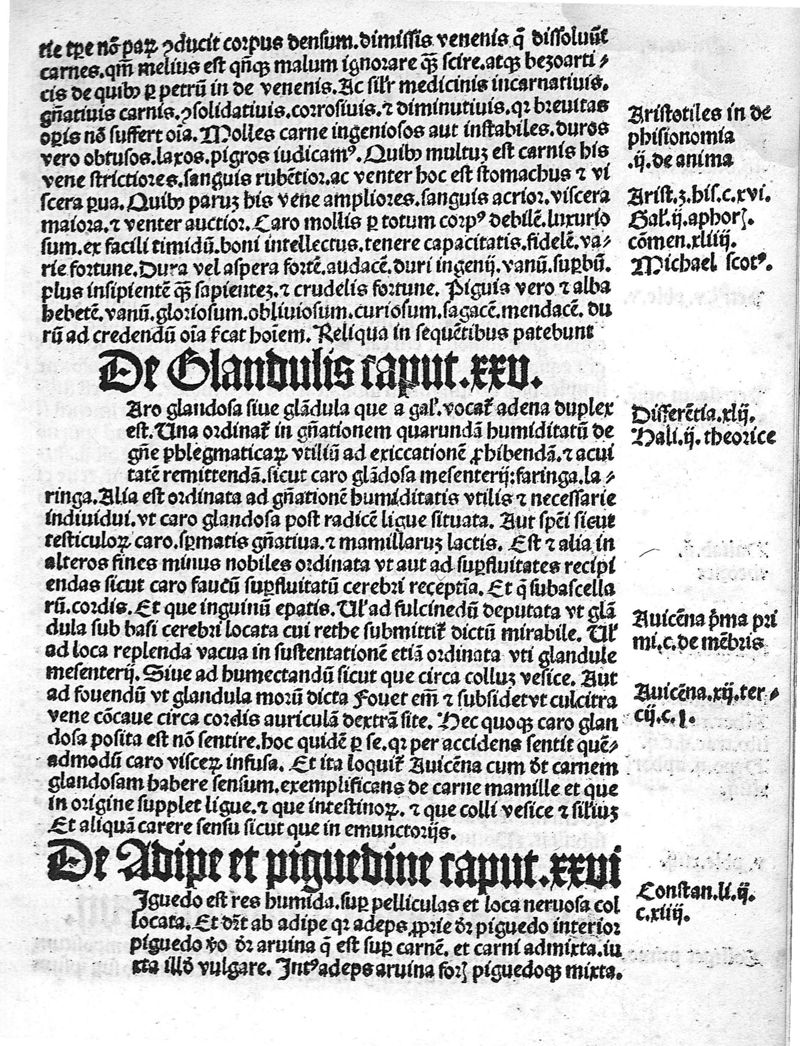 rie tp̄e nō paꝝ ꝯducit corpus densum. dimissis venenis q̄ dissoluūt
carnes. qm̄ melius est qn̄qꝫ malum ignorare qꝫ̄ scire. atqꝫ bezoarti⸗
cis de quibꝰ ꝑ petrū in de venenis. Ac sil'r medicinis incarnatiuis.
gn̄atiuis carnis. ꝯsolidatiuis. corrosiuis. ⁊ diminutiuis. qꝛ breuitas
oꝑis nō suffert oīa. Molles carne ingeniosos aut instabiles. duros
vero obtusos. laxos. pigros iudicamꝰ. Quibꝰ multuꝫ est carnis his
vene strictiores. sanguis rubētior. ac venter hoc est stomachus ⁊ vi
scera ꝑua. Quibꝰ paruꝫ his vene ampliores. sanguis acrior. viscera
maiora. ⁊ venter auctior. Caro mollis ꝑ totum corpꝰ debilē. luxurio
sum. ex facili timidū. boni intellectus. tenere capacitatis. fidelē. va⸗
rie fortune. Dura vel aspera fortē. audacē. duri ingenij. vanū. suꝑbū.
plus insipientē qꝫ̄ sapienteꝫ. ⁊ crudelis fortune. Piguis vero ⁊ alba
hebetē. vanū. gloriosum. obliuiosum. curiosum. sagacē. mendacē. du
rū ad credendū oīa hoīem. Reliqua in sequētibus patebunt
Aristotiles in de
phisionomia
.ij. de anima
Arist. ꝫ. his. c. xvi.
Gal'. ij. aphorꝭ.
cōmen. xliiij.
Michael scotꝰ.
De Glandulis caput. xxv.
Aro glandosa siue glādula que a gal'. vocat̄ adena duplex
est. Una ordinat̄ in gn̄ationem quarundā humiditatū de
gn̄e phlegmaticaꝝ vtiliū ad exiccationē ꝓhibendā. ⁊ acui
tatē remittendā. sicut caro glādosa mesenterij: faringa. la⸗
ringa. Alia est ordinata ad gn̄ationē humiditatis vtilis ⁊ necessarie
indiuidui. vt caro glandosa post radicē ligue situata. Aut spēi sicut
testiculoꝝ caro. sꝑmatis gn̄atiua. ⁊ mamillaruꝫ lactis. Est ⁊ alia in
alteros fines minus nobiles ordinata vt aut ad suꝑfluitates recipi
endas sicut caro faucū suꝑfluitatū cerebri receptīa. Et q̄ subascella
rū. cordis. Et que inguinū epatis. Ul' ad fulcinedū deputata vt glā
dula sub basi cerebri locata cui rethe submittit̄ dictū mirabile. Ul'
ad loca replenda vacua in sustentationē etiā ordinata vti glandule
mesenterij. Siue ad humectandū sicut que circa colluꝫ vesice. Aut
ad fouendū vt glandula morū dicta Fouet em̄ ⁊ subsidet vt culcitra
vene cōcaue circa cordis auriculā dextrā site. Hec quoqꝫ caro glan
dosa posita est nō sentire. hoc quidē ꝑ se. qꝛ per accidens sentit quē⸗
admodū caro visceꝝ infusa. Et ita loquit̄ Auicēna cum dr̄t carnem
glandosam habere sensum. exemplificans de carne mamille et que
in origine supplet ligue. ⁊ que intestinoꝝ. ⁊ que colli vesice ⁊ sil'iuꝫ
Et aliquā carere sensu sicut que in emunctorijs.
Differētia. xlij.
Hali. ij. theorice
Auicēna p̄ma pri
mi. c. de mēbris
Auicēna. xij. ter⸗
cij. c. j.
De Adipe et piguedine caput. xxvi
Iguedo est res humida. suꝑ pelliculas et loca neruosa col
locata. Et dr̄t ab adipe qꝛ adeps. ꝓprie dr̄ piguedo interior
piguedo v̊o dr̄ aruina q̄ est suꝑ carnē. et carni admixta. iu
xta illd̄ vulgare. Intꝰ adeps aruina forꝭ piguedoqꝫ mixta.
Constan. li. ij.
c. xiiij.